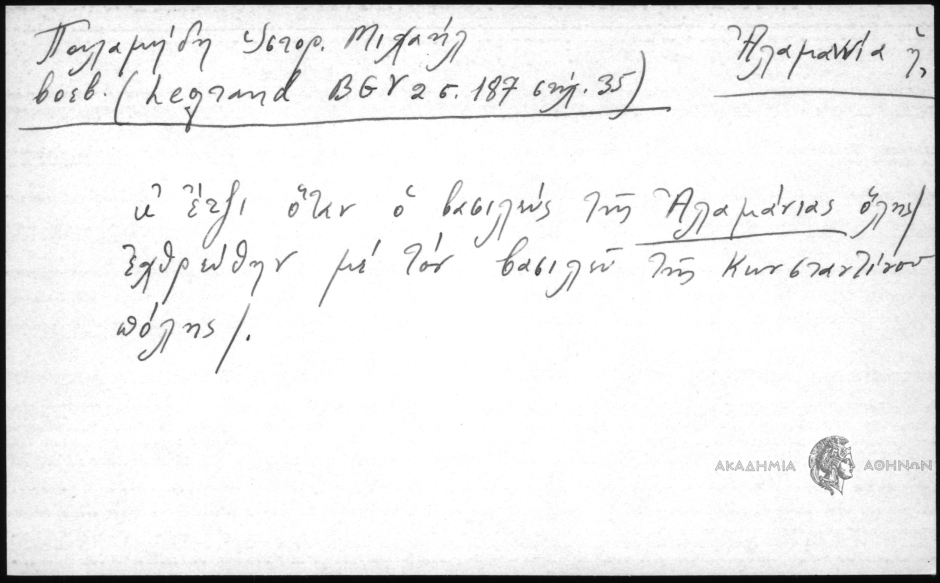 Παλαμήδη Ἱστορ. Μιχαήλ
βοεβ. (Legrand BGV 2 σ. 187 στίχ. 35)
Ἀλαμαννία ἡ,
κ' ἔτζι ὅταν ὁ βασιλεὺς τῆς Ἀλαμάνιας ὅλης/
ἐχθρεύθην μὲ τὸν βασιλεῦ τῆς Κωνσταντίνου
πόλης/.
ΑΚΑΔΗΜΙΑ ΑΘΗΝΩΝ